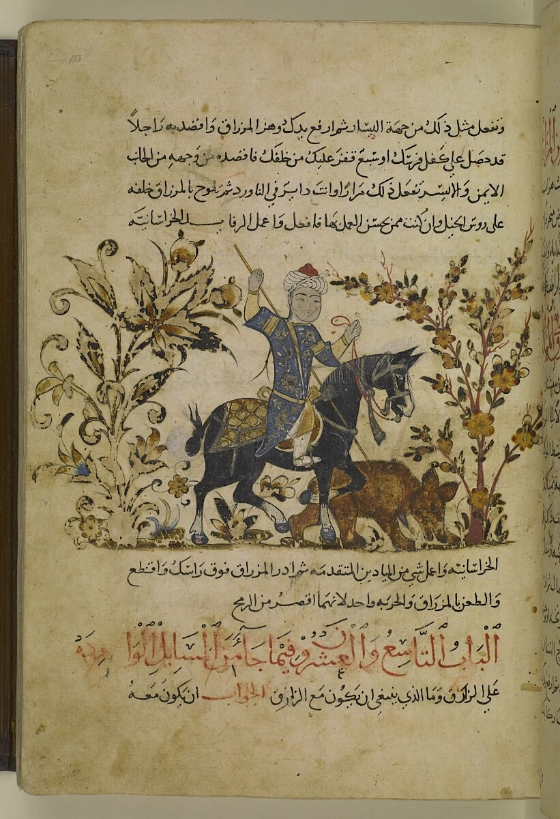 113
وتفعل مثل ذلك من جهة اليسار ثم ارفع يدك وهز المزراق واقصد به راجلاً
قد حصل على كفل فرسك او سبع قفز عليك من خلفك فاقصده من وجهه من الجانب
الايمن والايسر تفعل ذلك مراراً وانت داير في الناورد ثم لوح بالمزراق خلفه
على روس الخيل وان كنت ممن يحسن العمل بها فافعل واعمل الخراسانيه
الخراسانيه واعمل شي من الميادين المتقدمه ثم ادر المزراق فوق راسك واقطع
والطعن بالمزراق والحربه واحد لانهما اقصر من الرمح
الباب التاسع والعشرون فيما جاء من المسايل الوارده
على الزراق وما الذي ينبغي ان يكون مع الزارق الجواب ان يكون معه